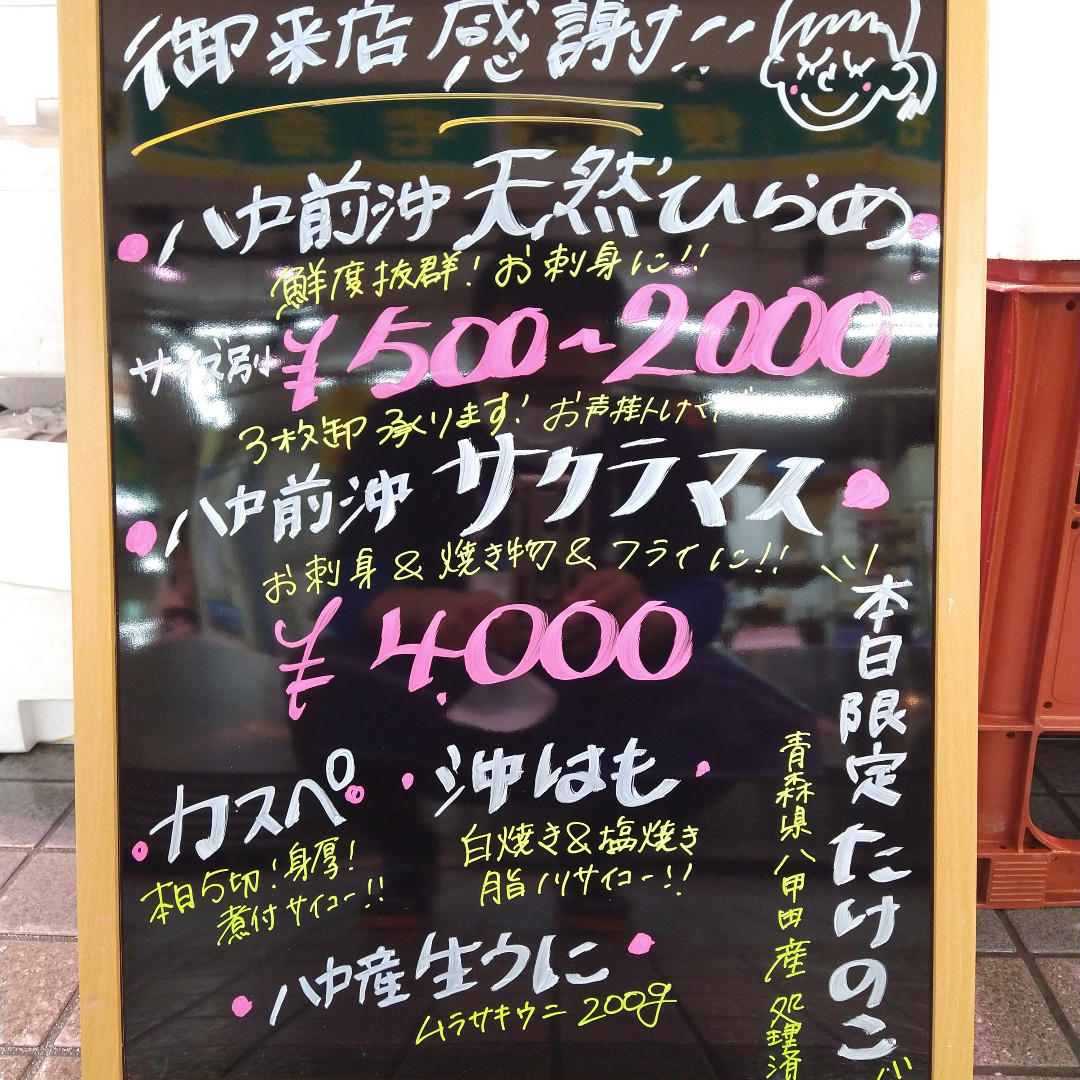 御来店感謝!!
八戸前沖 天然ひらめ
鮮度抜群! お刺身に!!
サイズ別 ¥500~2000
3枚卸承ります! お声掛け
八戸前沖 サクラマス
お刺身&焼き物&フライに!!
¥4,000
カスペ
本日5切!身厚!
煮付サイコー!!
沖はも
白焼き&塩焼き
脂ノリサイコー!!
八戸産生うに
ムラサキウニ 200g
本日限定 たけのこ
青森県八甲田産 処理済